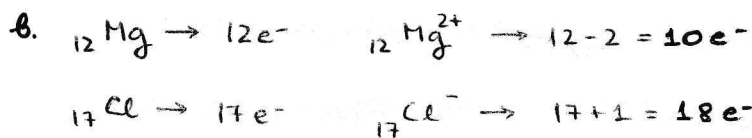 в. ₁₂Mg → 12e⁻ ₁₂Mg²⁺ → 12-2 = 10e⁻
₁₇Cl → 17e⁻ ₁₇Cl⁻ → 17+1 = 18e⁻